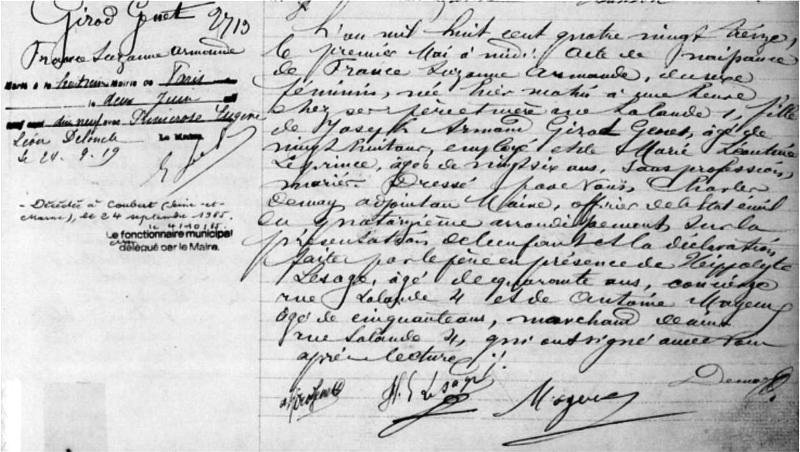 Girod Genet 2713
France Suzanne Armande
Marié à la huitième Mairie de Paris
le deux Juin
dix neuf avec Primerose Eugène
Léon Delinele
Le Maire,
Le 24.9.19
- Décédée à Coubert (Seine-et-
Marne), le 24 septembre 1955.
le 4.10.55
Le fonctionnaire municipal
délégué par le Maire,
L'an mil huit cent quatre vingt treize,
le premier Mai à midi. Acte de naissance
de France Suzanne Armande, du sexe
féminin, née hier matin à une heure
chez ses père et mère rue Lalande 1, fille
de Joseph Armand Girod Genet, âgé de
vingt huit ans, employé et de Marie Léontine
Leprince, âgée de vingt six ans, sans profession,
mariés. Dressé par nous, Charles
Demay adjoint au Maire, officier de l'état civil
du quatorzième arrondissement, sur la
présentation de l'enfant et la déclaration
faite par le père en présence de Hippolyte
Lesage, âgé de quarante ans, concierge
rue Lalande 4 et de Antoine Mayeux
âgé de cinquante ans, marchand de vins
rue Lalande 4, qui ont signé avec nous
après lecture.
A Girod Genet H. Lesage Demay